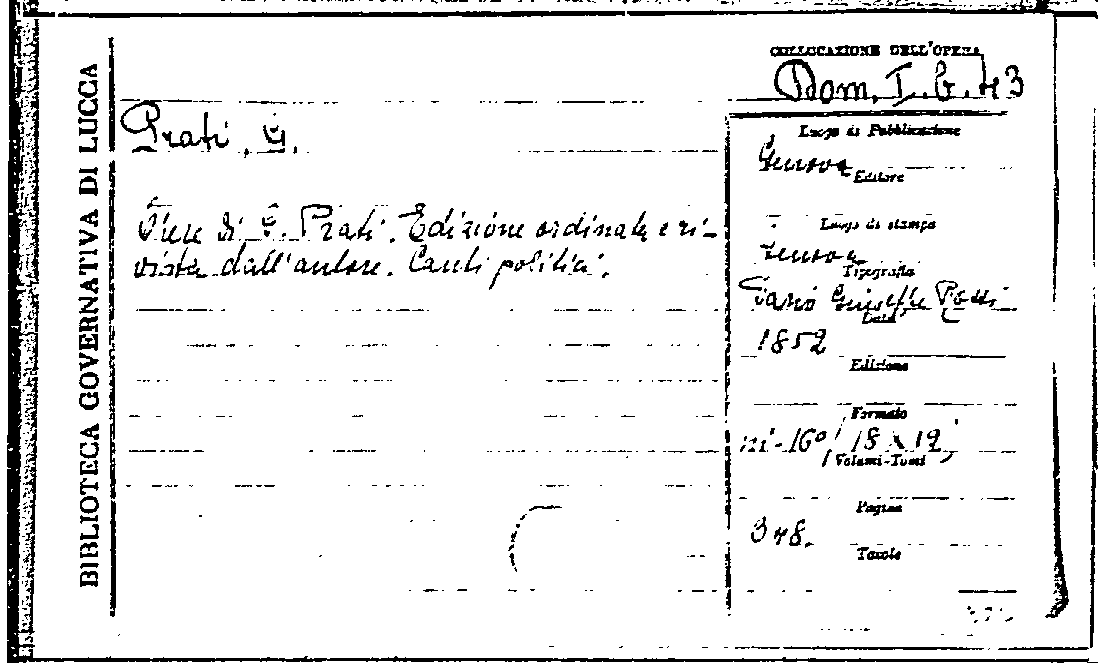 BIBLIOTECA GOVERNATIVA DI LUCCA
COLLOCAZIONE DELL'OPERA
Dom. I. b. 43
Prati, G.
di G. Prati. Edizione ordinata e ri-
vista dall'autore. Canti politici.
Luogo di Pubblicazione
Genova
Editore
Luogo di stampa
Genova
Tipografia
Giuseppe Rossi
Data
1852
Edizione
Formato
in-16° (18 x 12)
Volumi-Tomi
Pagine
348.
Tavole